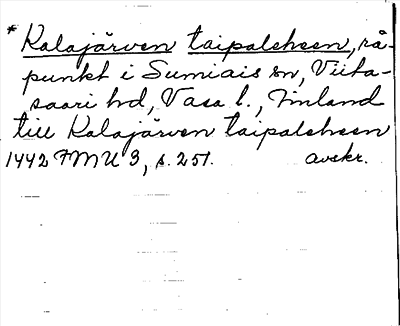 *Kalajärven taipaleheen, rå-
punkt i Sumiais sn, Viita-
saari hd, Vasa l., Finland
till Kalajärven taipaleheen
1442 FMU 3, s. 251. avskr.